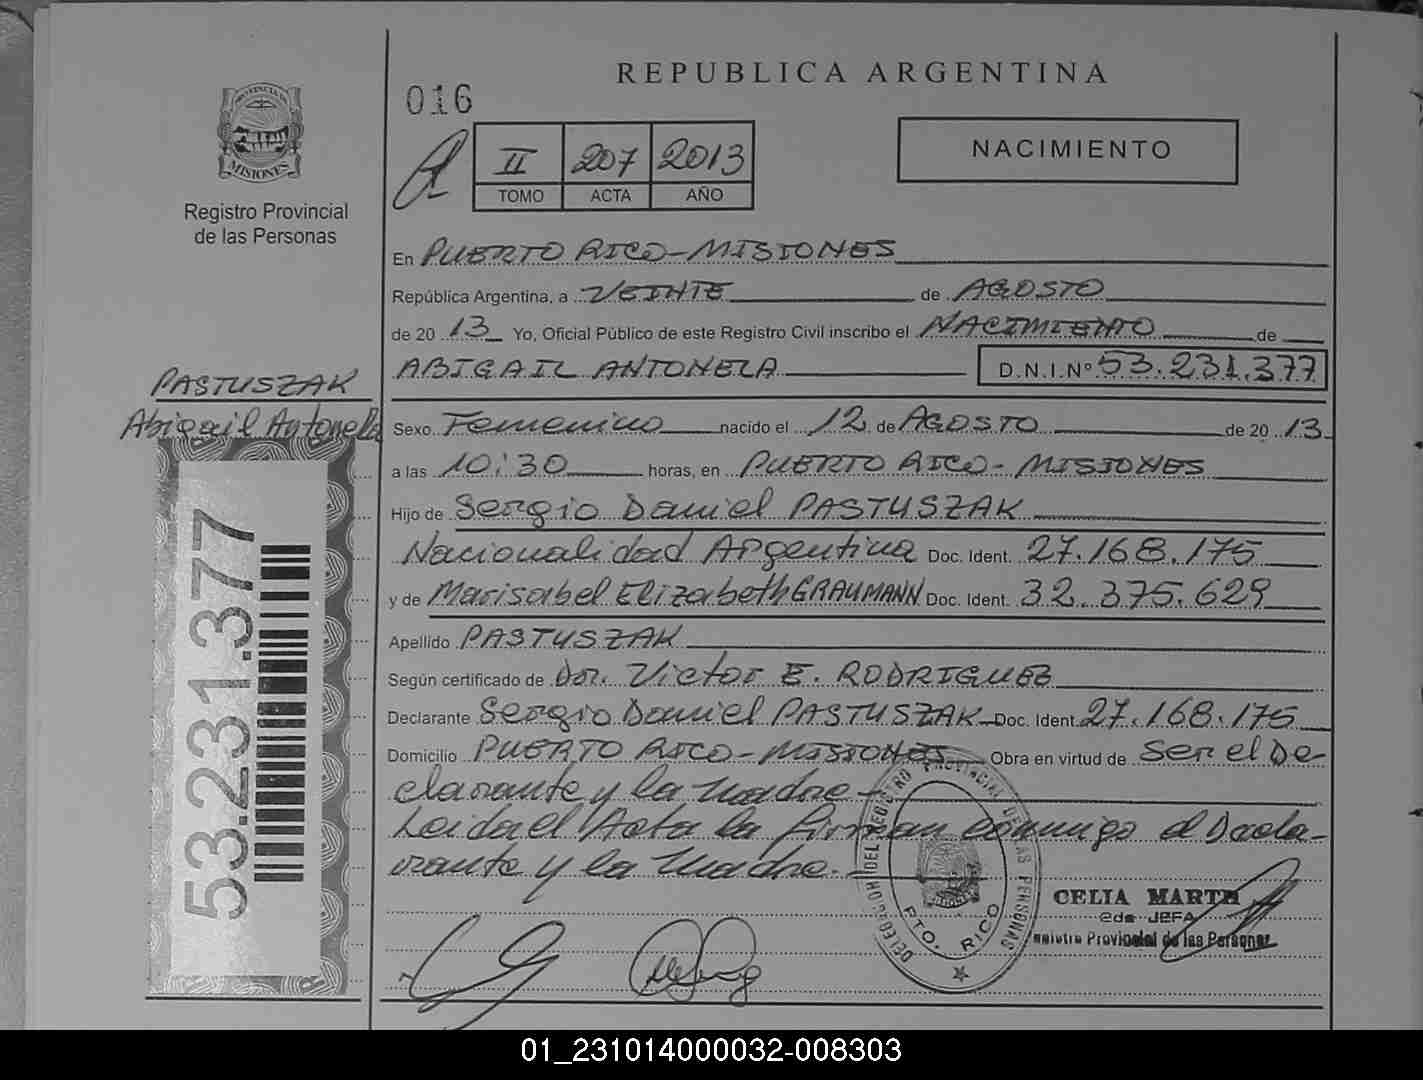 REPUBLICA ARGENTINA
016
II 207 2013
TOMO ACTA AÑO
NACIMIENTO
PROVINCIA DE
MISIONES
Registro Provincial
de las Personas
En PUERTO RICO-MISIONES
República Argentina, a VEINTE de AGOSTO
de 20 13 Yo, Oficial Público de este Registro Civil inscribo el NACIMIENTO de
ABIGAIL ANTONELA D.N.I.Nº 53.231.377
PASTUSZAK
Abigail Antonela
53.231.377
Sexo Femenino nacido el 12 de AGOSTO de 20 13
a las 10:30 horas, en PUERTO RICO- MISIONES
Hijo de Sergio Daniel PASTUSZAK
Nacionalidad Argentina Doc. Ident. 27.168.175
y de Marisabel Elizabeth GRAUMANN Doc. Ident. 32.375.629
Apellido PASTUSZAK
Según certificado de Dr. Victor E. RODRIGUEZ
Declarante Sergio Daniel PASTUSZAK Doc. Ident. 27.168.175
Domicilio PUERTO RICO-MISIONES Obra en virtud de Ser el De
clarante y la Madre-
Leida el Acta la firman conmigo el Decla-
rante y la Madre.
DEL REGISTRO PROVINCIAL DE LAS PERSONAS
PTO. RICO
CELIA MARTA
2da JEFA
Registro Provincial de las Personas
01_231014000032-008303